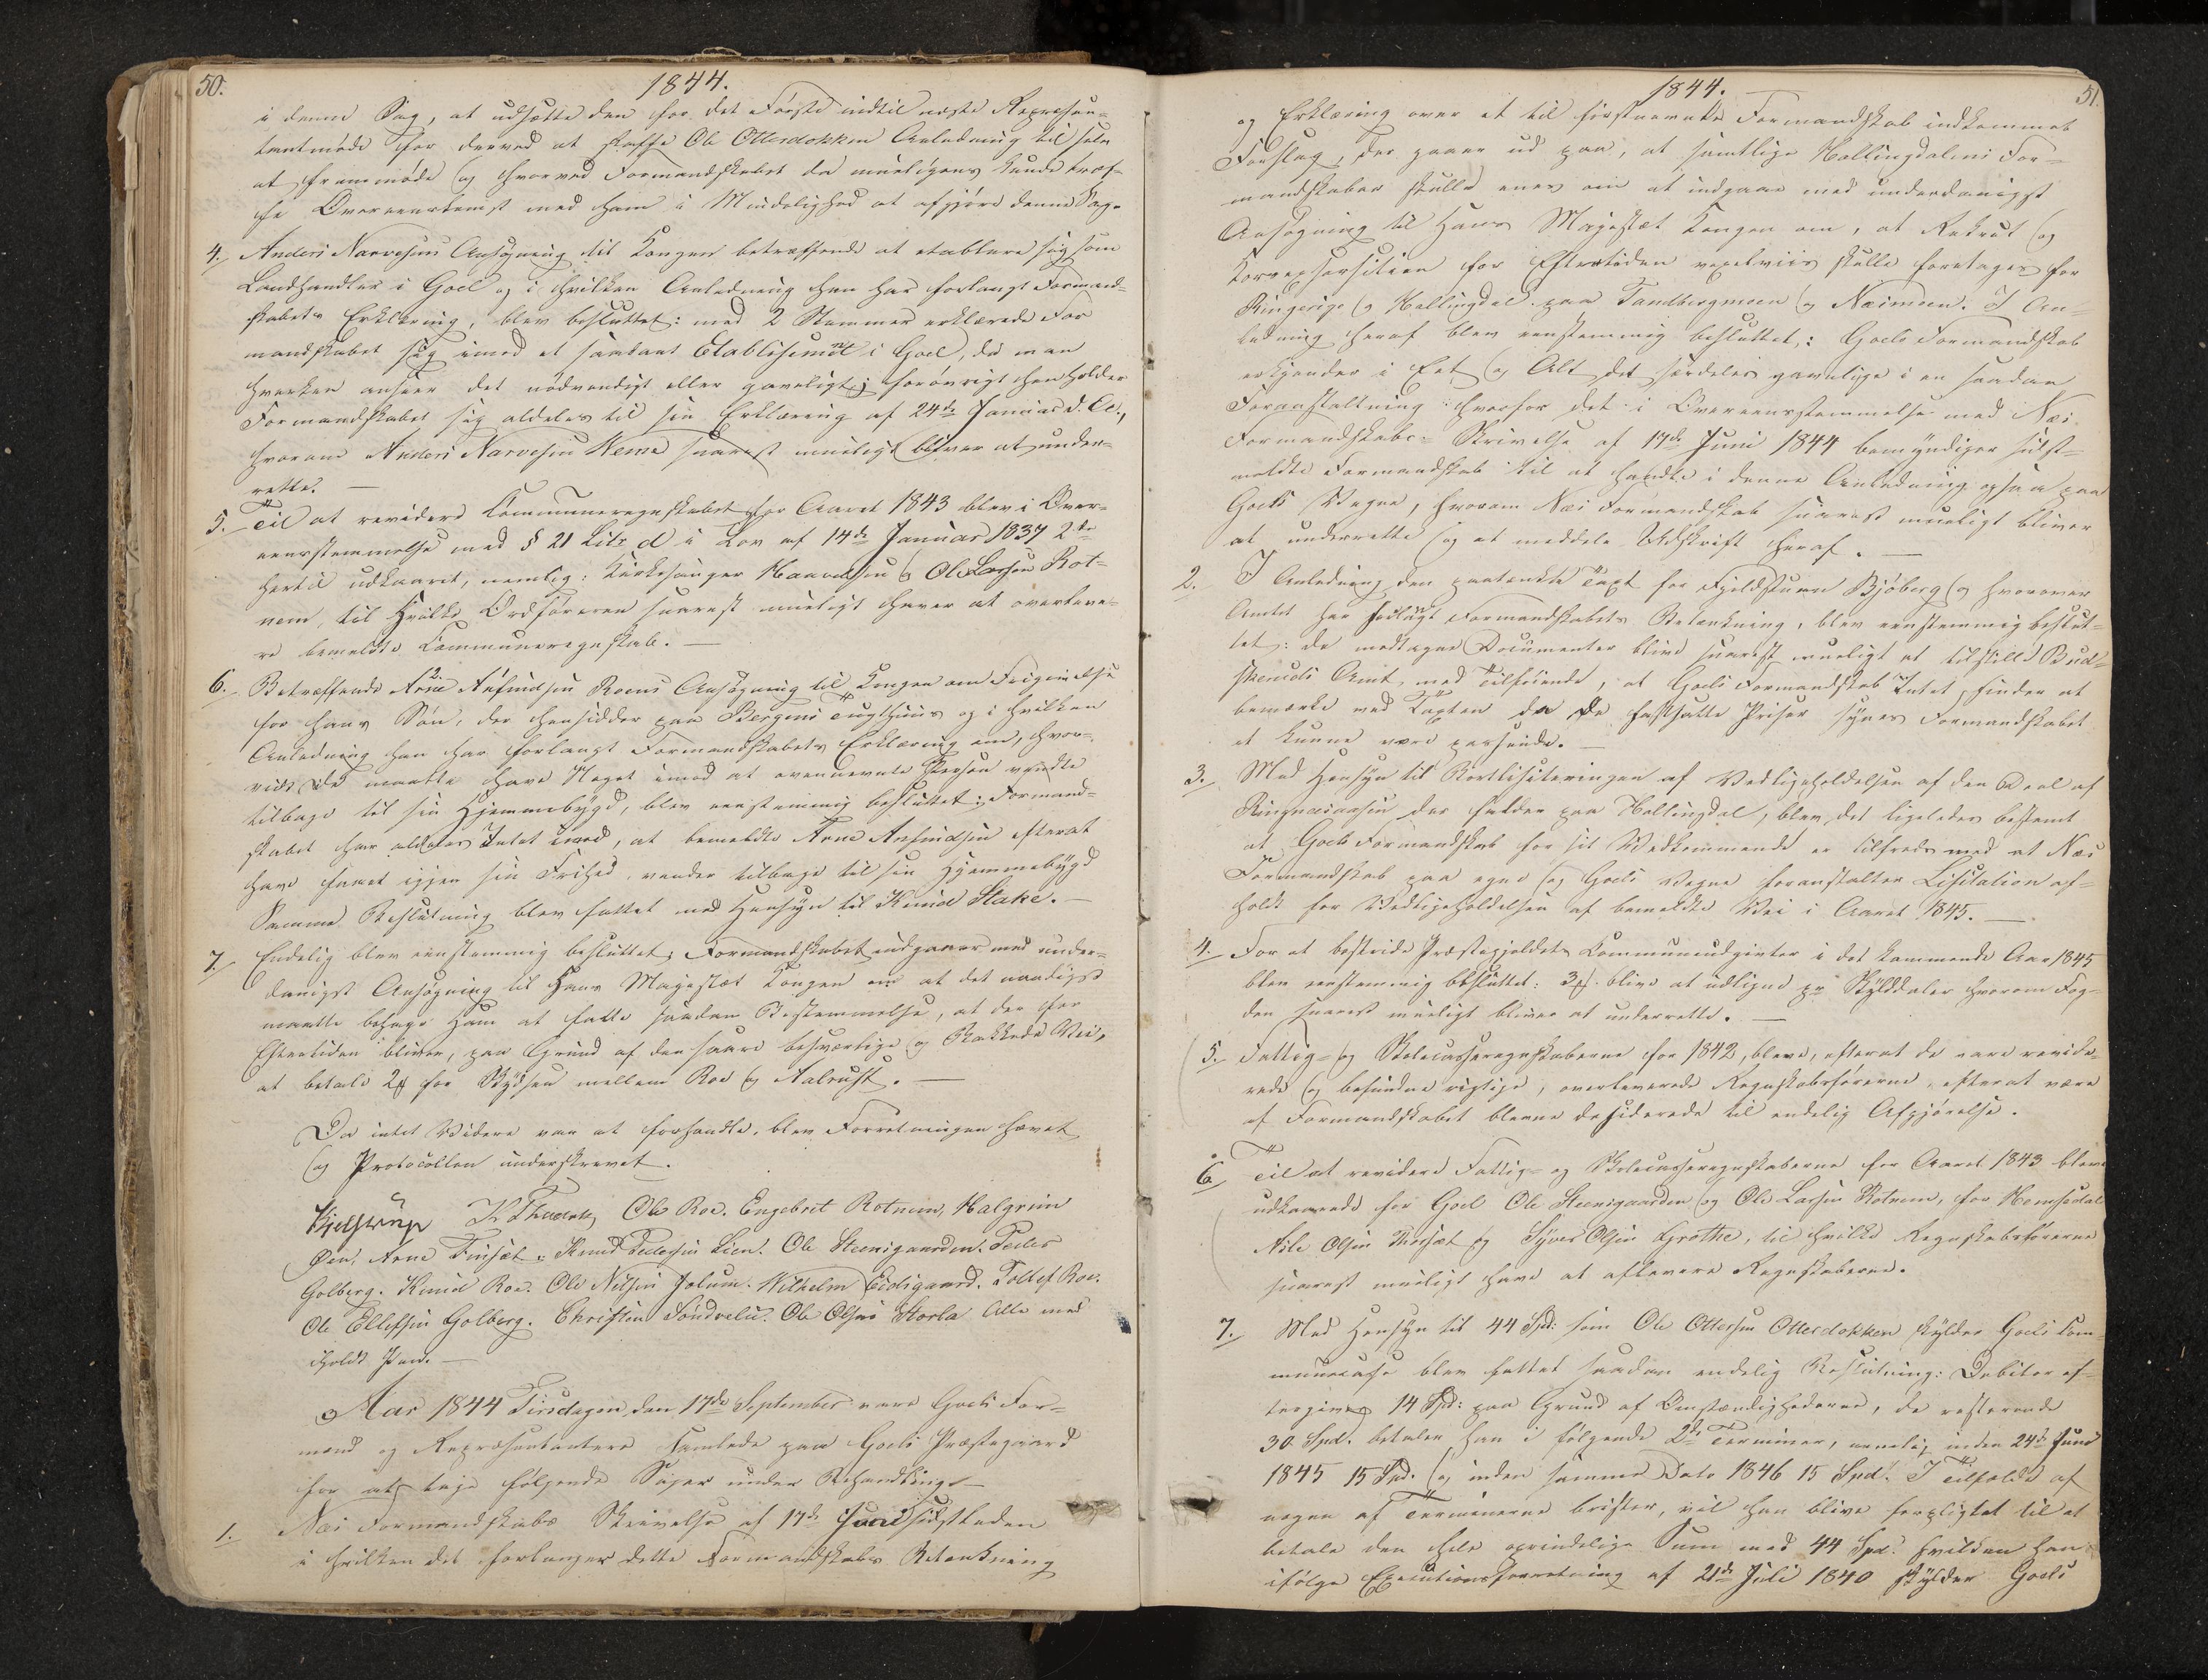 50.
1844.
i denne Sag, at udsætte den for det Første indtil næste Repræsen-
tantmøde for derved at skaffe Ole Ottersdokken Anledning til selv
at fremmøde og hvorved Formandskabet da mueligens kunde træf-
fe Overeenskomst med ham i Mindelighed at afgjøre denne Sag.
4. Anders Narvesens Ansøgning til Kongen betræffende at etablere sig som
Landhandler i Goel og i hvilken Anledning han har forlangt Formand-
skabets Erklæring, blev besluttet: med 2 Stemmer erklærede For
mandskabet sig imod et saadant Etablisement i Goel, da man
hverken anseer det nødvendigt eller gavnligt; forøvrigt henholder
Formandskabet sig aldeles til sin Erklæring af 24de Januar d. A.,
hvorom Anders Narvesen Neme snarest mueligt bliver at under-
rette. —
5. Til at revidere Communeregnskabet for Aaret 1843 blev i Over-
eensstemmelse med § 21 Litr. d i Lov af 14de Januar 1837 2de
hertil udkaaret, nemlig: Kirkesanger Haavelsen og Ole Larsen Rot-
nem, til hvilke Ordføreren snarest mueligt haver at overleve-
re bemeldte Communeregnskab. —
6. Betræffende Arne Anfindsen Roens Ansøgning til Kongen om Frigivelse
for hans Søn, der hensidder paa Bergens Tugthuus og i hvilken
Anledning han har forlangt Formandskabets Erklæring om, hvor-
vidt De maatte have Noget imod at ovennevnte Person vendte
tilbage til sin Hjemmebygd, blev eenstemmig besluttet: Formand-
skabet har aldeles Intet imod, at bemeldte Arne Anfindsen efterat
have faaet igjen sin Frihed, vender tilbage til sin Hjemmebygd
Samme Beslutning blev fattet med Hensyn til Knud Stake. —
7. Endelig blev eenstemmig besluttet: Formandskabet indgaaer med under-
danigst Ansøgning til Hans Majestæt Kongen om at det naadigst
maatte behage Ham at fatte saadan Bestemmelse, at der for
Eftertiden bliver, paa Grund af den saare besværlige og Bakkede Vei,
at betale 2 for Skydsen mellem Roe og Aalrust. —
Da intet Videre var at forhandle, blev Forretningen hævet
og Protocollen underskrevet.
Kjelstrup K Thurn Ole Roe. Engebret Rotnem, Halgrim
Øen, Arne Finset. Knud Pedersen Lien. Ole Steensgaarden. Peder
Golberg. Knud Roe. Ole Nilsen Jolum. Wilhelm Eidsgaard. Tollef Roe.
Ole Ellefsen Golberg. Christen Sondrelie. Ole Olsen Storla Alle med
iholdt Pen. —
Aar 1844 Tirsdagen den 17de September vare Goels For-
mænd og Repræsentantere samlede paa Goels Præstegaard
for at tage følgende Sager under Behandling. —
1. Næs Formandskabs Skrivelse af 17de Juni sidstleden
i hvilken det forlanger dette Formandskabs Betænkning
1844.
51.
og Erklæring over et til førstnævnte Formandskab indkommet
Forslag, der gaaer ud paa, at samtlige Hallingdalens For-
mandskaber skulle enes om at indgaae med underdanigst
Ansøgning til Hans Majestæt Kongen om, at Rekrut og
Korpsexersitien for Eftertiden vexelviis skulle foretages for
Ringerige og Hallingdal paa Tandbergmoen og Næsmoen. I An-
ledning heraf blev eenstemmig besluttet,: Goels Formandskab
erkjender i Eet og Alt det særdeles gavnlige i en saadan
Foranstaltning hvorfor det i Overeensstemmelse med Næs
Formandskabs Skrivelse af 17de Juni 1844 bemyndiger sidst-
meldte Formandskab til at handle i denne Anledning ogsaa paa
Goels Vegne, hvorom Næs Formandskab snarest mueligt bliver
at underrette og at meddele Udskrift heraf. —
2. I Anledning den paatænkte Taxt for Fjeldstuen Bjøberg og hvorover
Amtet har forlangt Formandskabets Betænkning, blev eenstemmig beslut-
tet: de modtagne Documenter blive snarest mueligt at tilstille Bud-
skeruds Amt med Tilføiende, at Goels Formandskab Intet finder at
bemærke ved Taxten da De fastsatte Priser synes Formandskabet
at kunne være passende. —
3. Med Hensyn til Bortlisiteringen af Vedligeholdelsen af den Deel af
Ringnæsaasen der falder paa Hallingdal, blev det ligeledes bestemt
at Goels Formandskab for sit Vedkommende er tilfreds med at Næs
Formandskab paa egne og Goels Vegne foranstalter Lisitation af-
holdt for Vedligeholdelsen af bemeldte Vei i Aaret 1845. —
4. For at bestride Præstegjeldets Communeudgivter i det kommende Aar 1845
blev eenstemmig besluttet: 3 blive at udligne pr Skylddaler hvorom Fog-
den snarest mueligt bliver at underrette. —
5. Fattig- og Skolecasseregnskaberne for 1842, bleve, efterat de vare revide-
rede og befundne rigtige, overleverede Regnskabsførerne, efterat være
af Formandskabet blevne desiderede til endelig Afgjørelse.
6. Til at revidere Fattig- og Skolecasseregnskaberne for Aaret 1843 bleve
udkaarede for Goel Ole Steensgaarden og Ole Larsen Rotnem, for Hemsedal
Nils Olsen Thorset og Syver Olsen Grøthe, til hvilke Regnskabsførerne
snarest mueligt have at aflevere Regnskaberne.
7. Med Hensyn til 44 Spd: som Ole Ottersen Ottersdokken skylder Goels Com-
munecasse blev fattet saadan endelig Beslutning: Debitor ef-
tergives 14 Spd: paa Grund af Omstændighederne, de resterende
30 Spd. betaler han i følgende 2de Terminer, nemlig inden 24de Juni
1845 15 Spd. og inden samme Dato 1846 15 Spd. I Tilfælde af
nogen af Terminerne brister, vil han blive forpligtet til at
betale den hele oprindelige Sum med 44 Spd. hvilken han
ifølge Executionsforretning af 21de Juli 1840 skylder Goels